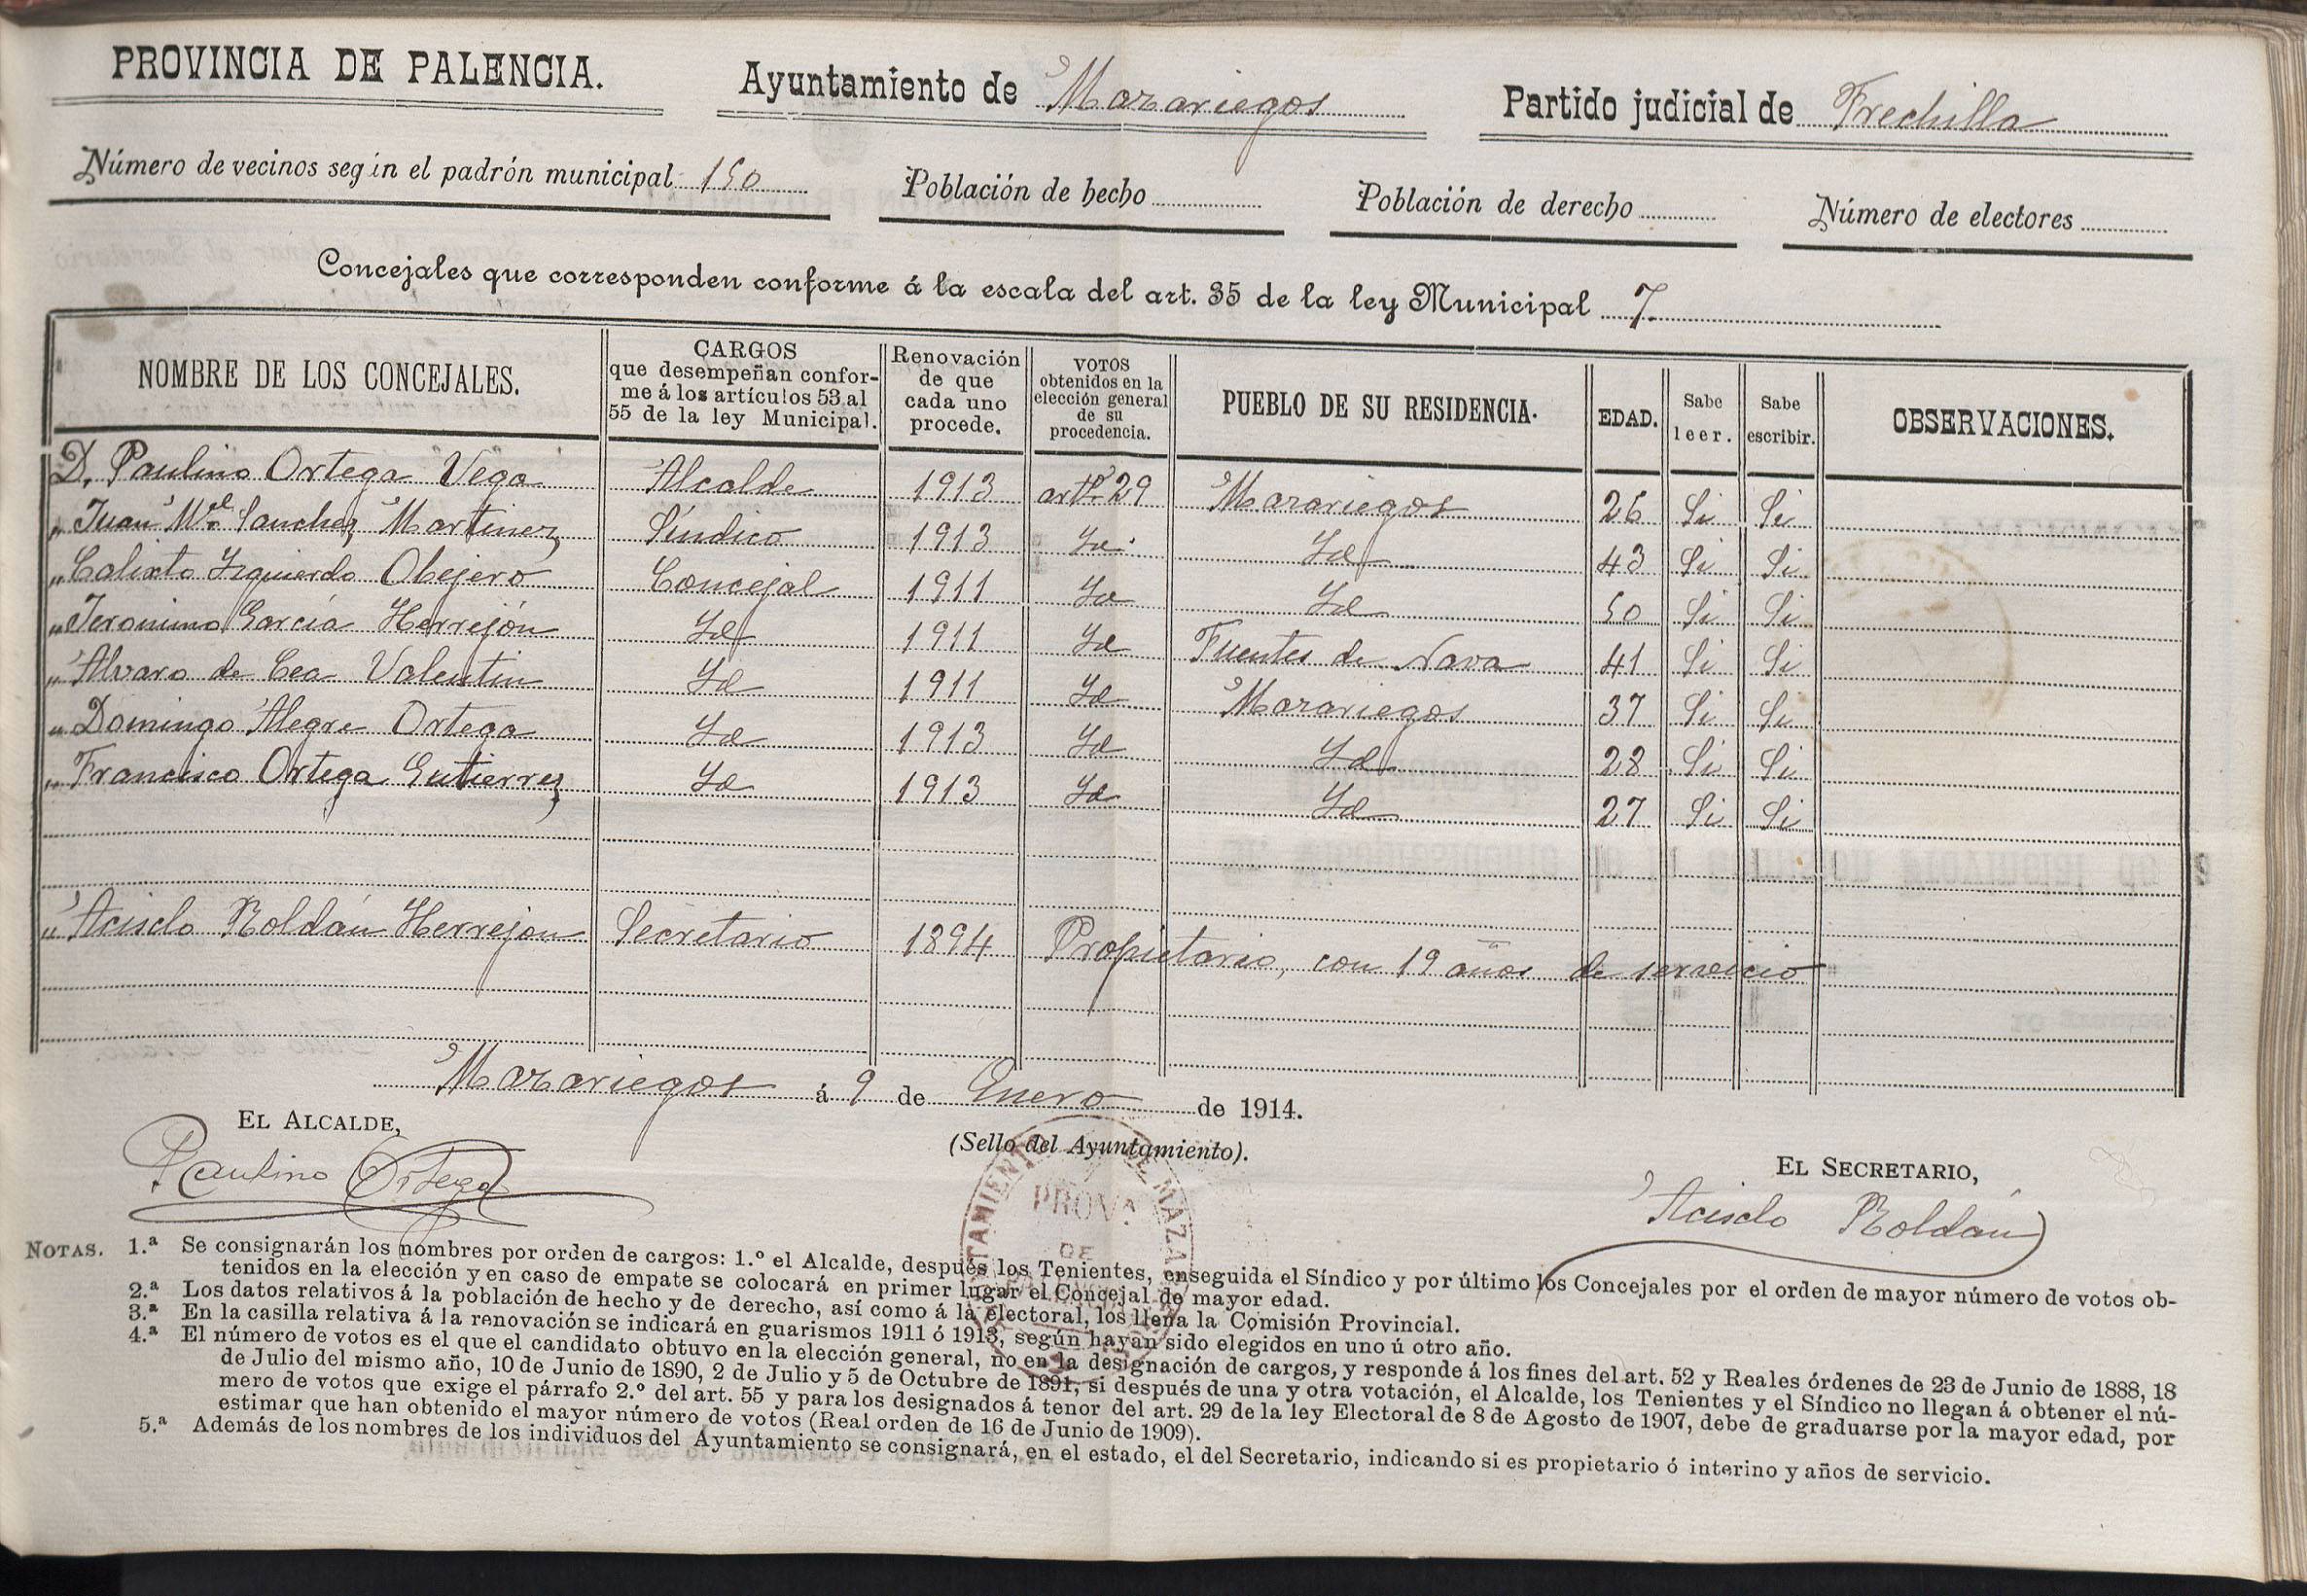 PROVINCIA DE PALENCIA. Ayuntamiento de Mazariegos Partido judicial de Frechilla
Número de vecinos según el padrón municipal 150 Población de hecho Población de derecho Número de electores
Concejales que corresponden conforme á la escala del art. 35 de la ley Municipal 7.
NOMBRE DE LOS CONCEJALES. CARGOS que desempeñan confor- me á los artículos 53 al 55 de la ley Municipal. Renovación de que cada uno procede. VOTOS obtenidos en la elección general de su procedencia. PUEBLO DE SU RESIDENCIA. EDAD. Sabe leer. Sabe escribir. OBSERVACIONES.
D. Paulino Ortega Vega Alcalde 1913 artº 29 Mazariegos 26 Si Si
" Juan Mel Sanchez Martinez Síndico 1913 Id. Id 43 Si Si
" Calixto Izquierdo Obejero Concejal 1911 Id Id 50 Si Si
" Jeronimo García Herrejón Id 1911 Id Fuentes de Nava 41 Si Si
" Alvaro de Cea Valentin Id 1911 Id Mazariegos 37 Si Si
" Domingo Alegre Ortega Id 1913 Id Id 28 Si Si
" Francisco Ortega Gutierrez Id 1913 Id Id 27 Si Si
" Acisclo Roldán Herrejon Secretario 1894 Propietario, con 19 años de servicio
Mazariegos á 9 de Enero de 1914.
EL ALCALDE,
(Sello del Ayuntamiento).
EL SECRETARIO,
Paulino Ortega
Acisclo Roldán
PROVA
DE
NOTAS. 1.ª Se consignarán los nombres por orden de cargos: 1.º el Alcalde, después los Tenientes, enseguida el Síndico y por último los Concejales por el orden de mayor número de votos ob-
tenidos en la elección y en caso de empate se colocará en primer lugar el Concejal de mayor edad.
2.ª Los datos relativos á la población de hecho y de derecho, así como á la electoral, los llena la Comisión Provincial.
3.ª En la casilla relativa á la renovación se indicará en guarismos 1911 ó 1913, según hayan sido elegidos en uno ú otro año.
4.ª El número de votos es el que el candidato obtuvo en la elección general, no en la designación de cargos, y responde á los fines del art. 52 y Reales órdenes de 23 de Junio de 1888, 18
de Julio del mismo año, 10 de Junio de 1890, 2 de Julio y 5 de Octubre de 1891, si después de una y otra votación, el Alcalde, los Tenientes y el Síndico no llegan á obtener el nú-
mero de votos que exige el párrafo 2.º del art. 55 y para los designados á tenor del art. 29 de la ley Electoral de 8 de Agosto de 1907, debe de graduarse por la mayor edad, por
estimar que han obtenido el mayor número de votos (Real orden de 16 de Junio de 1909).
5.ª Además de los nombres de los individuos del Ayuntamiento se consignará, en el estado, el del Secretario, indicando si es propietario ó interino y años de servicio.